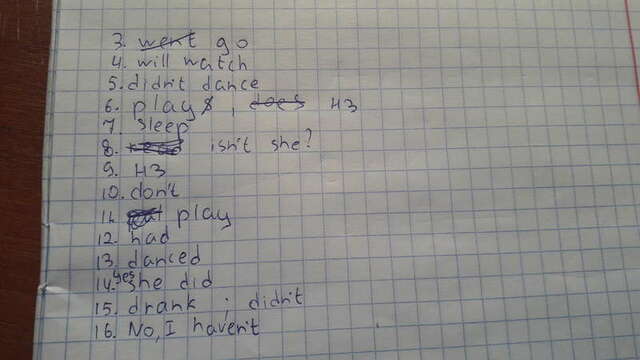 3. went go
4. will watch
5. didn't dance
6. plays, does нз
7. sleep
8. isn't she?
9. нз
10. don't
11. play
12. had
13. danced
14. yes she did
15. drank. didn't
16. No, I haven't